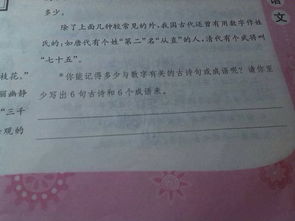 多少。
除了上面几种较常见的外，我国古代还曾有用数字作姓
氏的：如唐代有个姓“第二”名“从直”的人，清代有个武将叫
“七十五”。
你能记得多少与数字有关的古诗句或成语呢？请你至
少写出6句古诗和6个成语来。
枝花，”
丽幽静
“三千
观的
语文